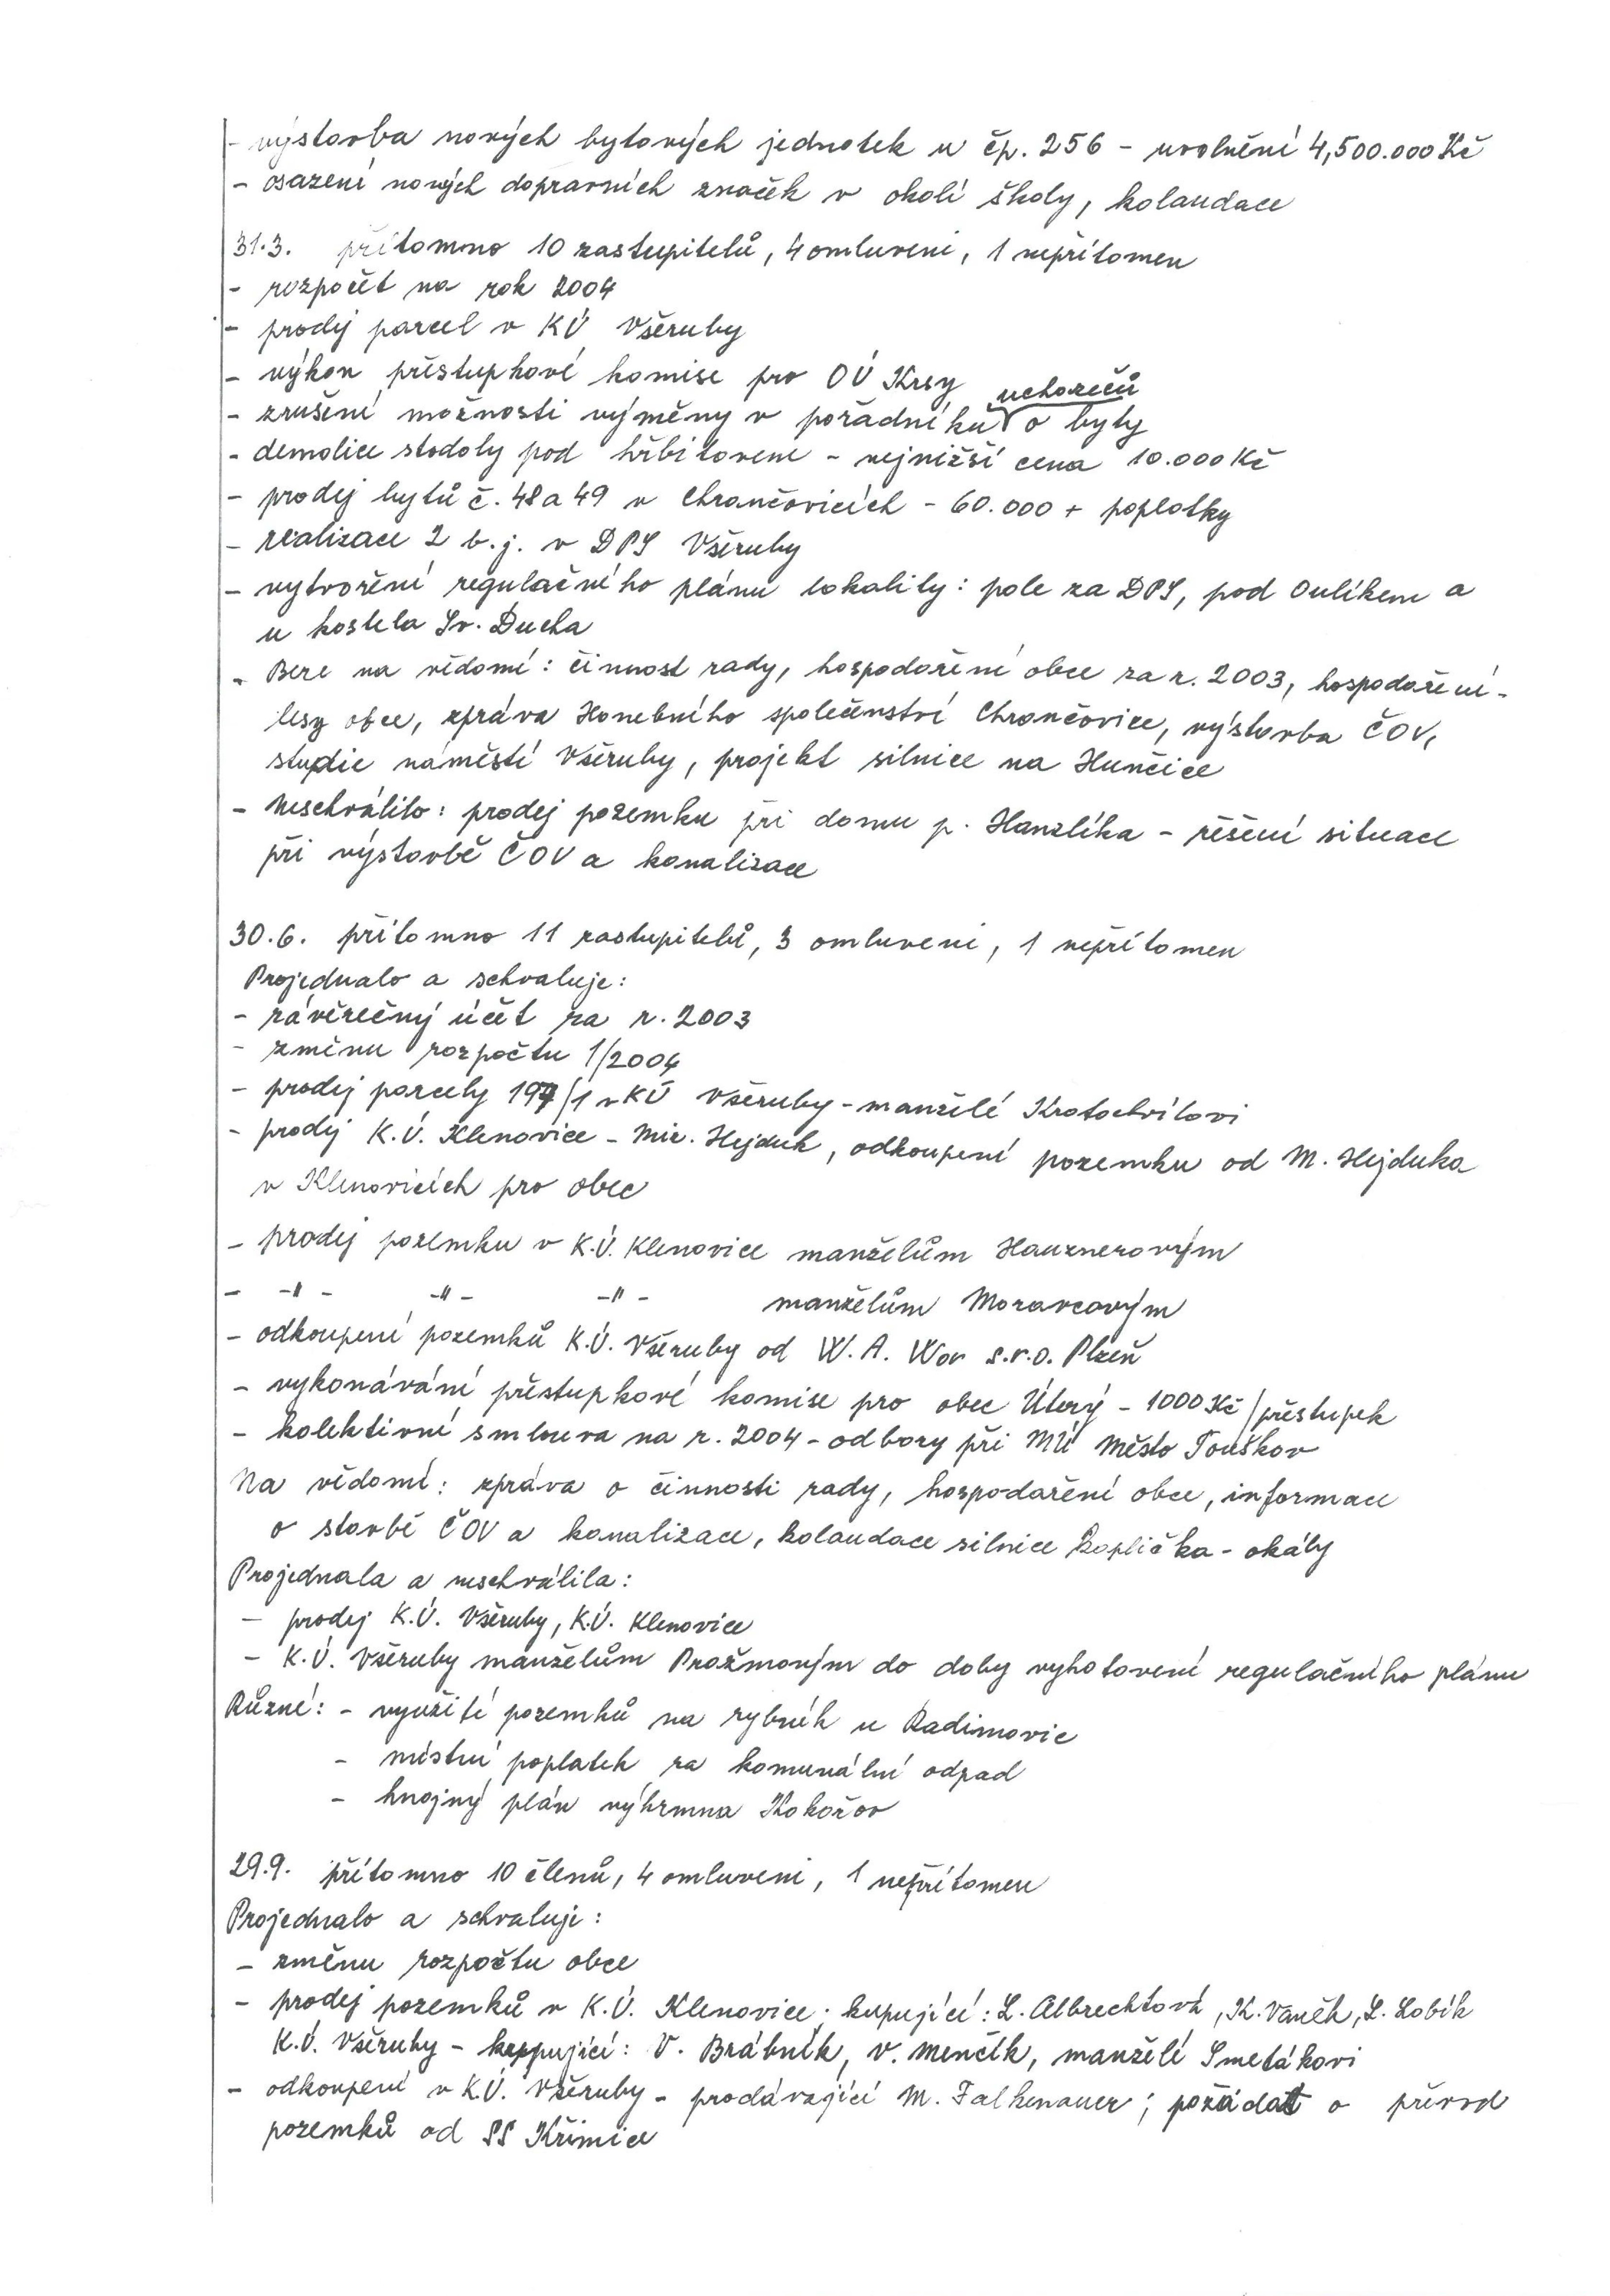 - výstavba nových bytových jednotek u čp. 256 - uvolnění 4,500.000 Kč
- osazení nových dopravních značek v okolí školy, kolaudace
31.3. přítomno 10 zastupitelů, 4 omluveni, 1 nepřítomen
- rozpočet na rok 2004
- prodej parcel v KÚ Všeruby
- výkon přestupkové komise pro OÚ Krsy
- zrušení možnosti výměny v pořadníku uchazečů o byty
- demolice stodoly pod hřbitovem - nejnižší cena 10.000 Kč
- prodej bytů č. 48 a 49 v Chrančovicích - 60.000 + poplatky
- realizace 2 b.j. v DPS Všeruby
- vytvoření regulačního plánu lokality: pole za DPS, pod Oulíkem a
u kostela Sv. Ducha
- Bere na vědomí: činnost rady, hospodaření obce za r. 2003, hospodaření -
lesy obce, zpráva Honebního společenství Chrančovice, výstavba ČOV,
studie náměstí Všeruby, projekt silnice na Hunčice
- Neschválilo: prodej pozemku při domu p. Hanzlíka - řešení situace
při výstavbě ČOV a kanalizace
30.6. přítomno 11 zastupitelů, 3 omluveni, 1 nepřítomen
Projednalo a schvaluje:
- závěrečný účet za r. 2003
- změnu rozpočtu 1/2004
- prodej parcely 197/1 v KÚ Všeruby - manželé Kratochvílovi
- prodej K.Ú. Klenovice - Mir. Hejduk, odkoupení pozemku od M. Hejduka
v Klenovicích pro obec
- prodej pozemku v K.Ú. Klenovice manželům Hauznerovým
- -"- -"- -"- manželům Moravcovým
- odkoupení pozemků K.Ú. Všeruby od W. A. Wor s.r.o. Plzeň
- vykonávání přestupkové komise pro obec Úterý - 1000 Kč/přestupek
- kolektivní smlouva na r. 2004 - odbory při MÚ Město Touškov
Na vědomí: zpráva o činnosti rady, hospodaření obce, informace
o stavbě ČOV a kanalizace, kolaudace silnice Kaplička - okály
Projednala a neschválila:
- prodej K.Ú. Všeruby, K.Ú. Klenovice
- K.Ú. Všeruby manželům Prožmovým do doby vyhotovení regulačního plánu
Různé: - využití pozemků na rybník u Radimovic
- místní poplatek za komunální odpad
- hnojný plán výkrmna Kokořov
29.9. přítomno 10 členů, 4 omluveni, 1 nepřítomen
Projednalo a schvaluje:
- změnu rozpočtu obce
- prodej pozemků v K.Ú. Klenovice. kupující: L. Albrechtová, K. Vaněk, L. Lobík
K.Ú. Všeruby - kupující: V. Brábník, V. Menčík, manželé Smetákovi
- odkoupení v K.Ú. Všeruby - prodávající M. Falkenauer; požádat o převod
pozemků od SS Křimice